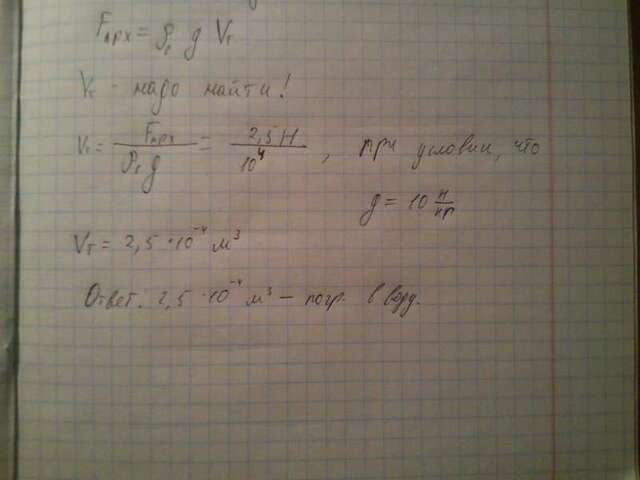 Fарх = ρс g Vт
Vт - надо найти!
Vт = Fарх / ρс g = 2,5 Н / 10⁴ , при условии, что
g = 10 н/кг
Vт = 2,5 · 10⁻⁴ м³
Ответ. 2,5 · 10⁻⁴ м³ – погр. в воду.